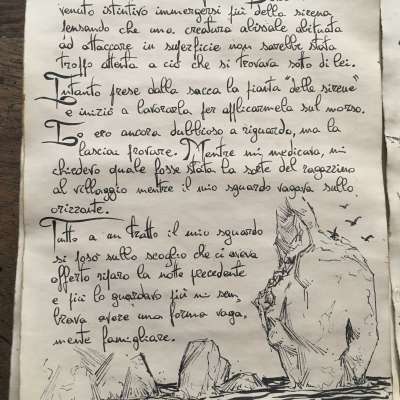 venuto istintivo immergersi più della sirena
pensando che una creatura abissale abituata
ad attaccare in superficie non sarebbe stata
troppo attenta a ciò che si trovava sotto di lei.
Intanto prese dalla sacca la pianta "delle sirene"
e iniziò a lavorarla per applicarmela sul morso.
Io ero ancora dubbioso a riguardo, ma la
lasciai provare. Mentre mi medicava, mi
chiedevo quale fosse stata la sorte del ragazzino
al villaggio mentre il mio sguardo vagava sullo
orizzonte.
Tutto a un tratto il mio sguardo
si posò sullo scoglio che ci aveva
offerto riparo la notte precedente
e più lo guardavo più mi sem,
brava avere una forma vaga,
mente famigliare.